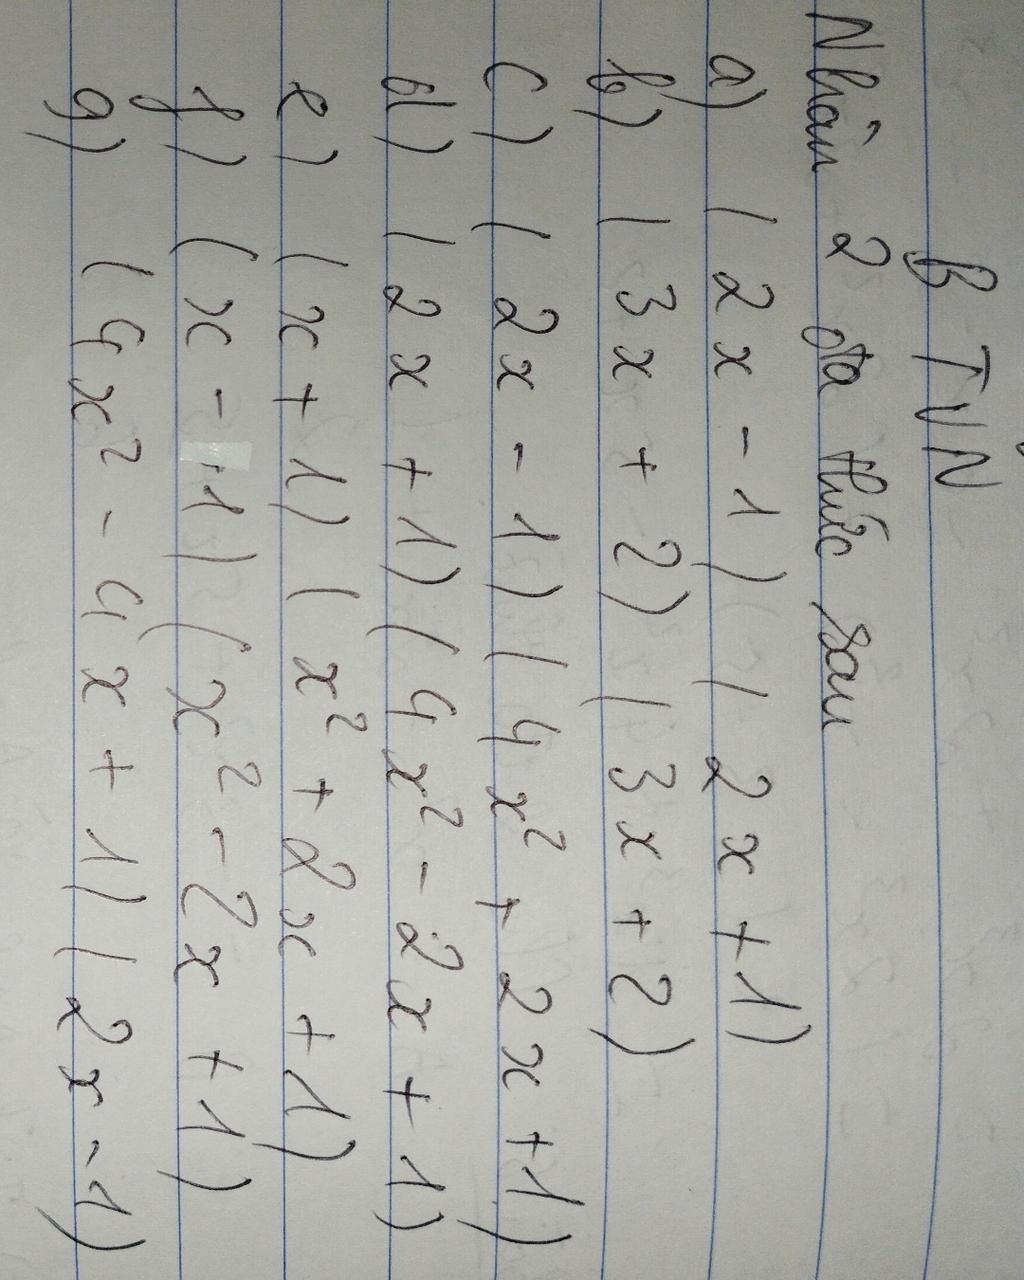 BTVN
Nhân 2 đa thức sau
a) (2x - 1) (2x + 1)
b) (3x + 2) (3x + 2)
c) (2x - 1) (4x² + 2x + 1)
d) (2x + 1) (4x² - 2x + 1)
e) (x + 1) (x² + 2x + 1)
f) (x - 1) (x² - 2x + 1)
g) (4x² - 4x + 1) (2x - 1)